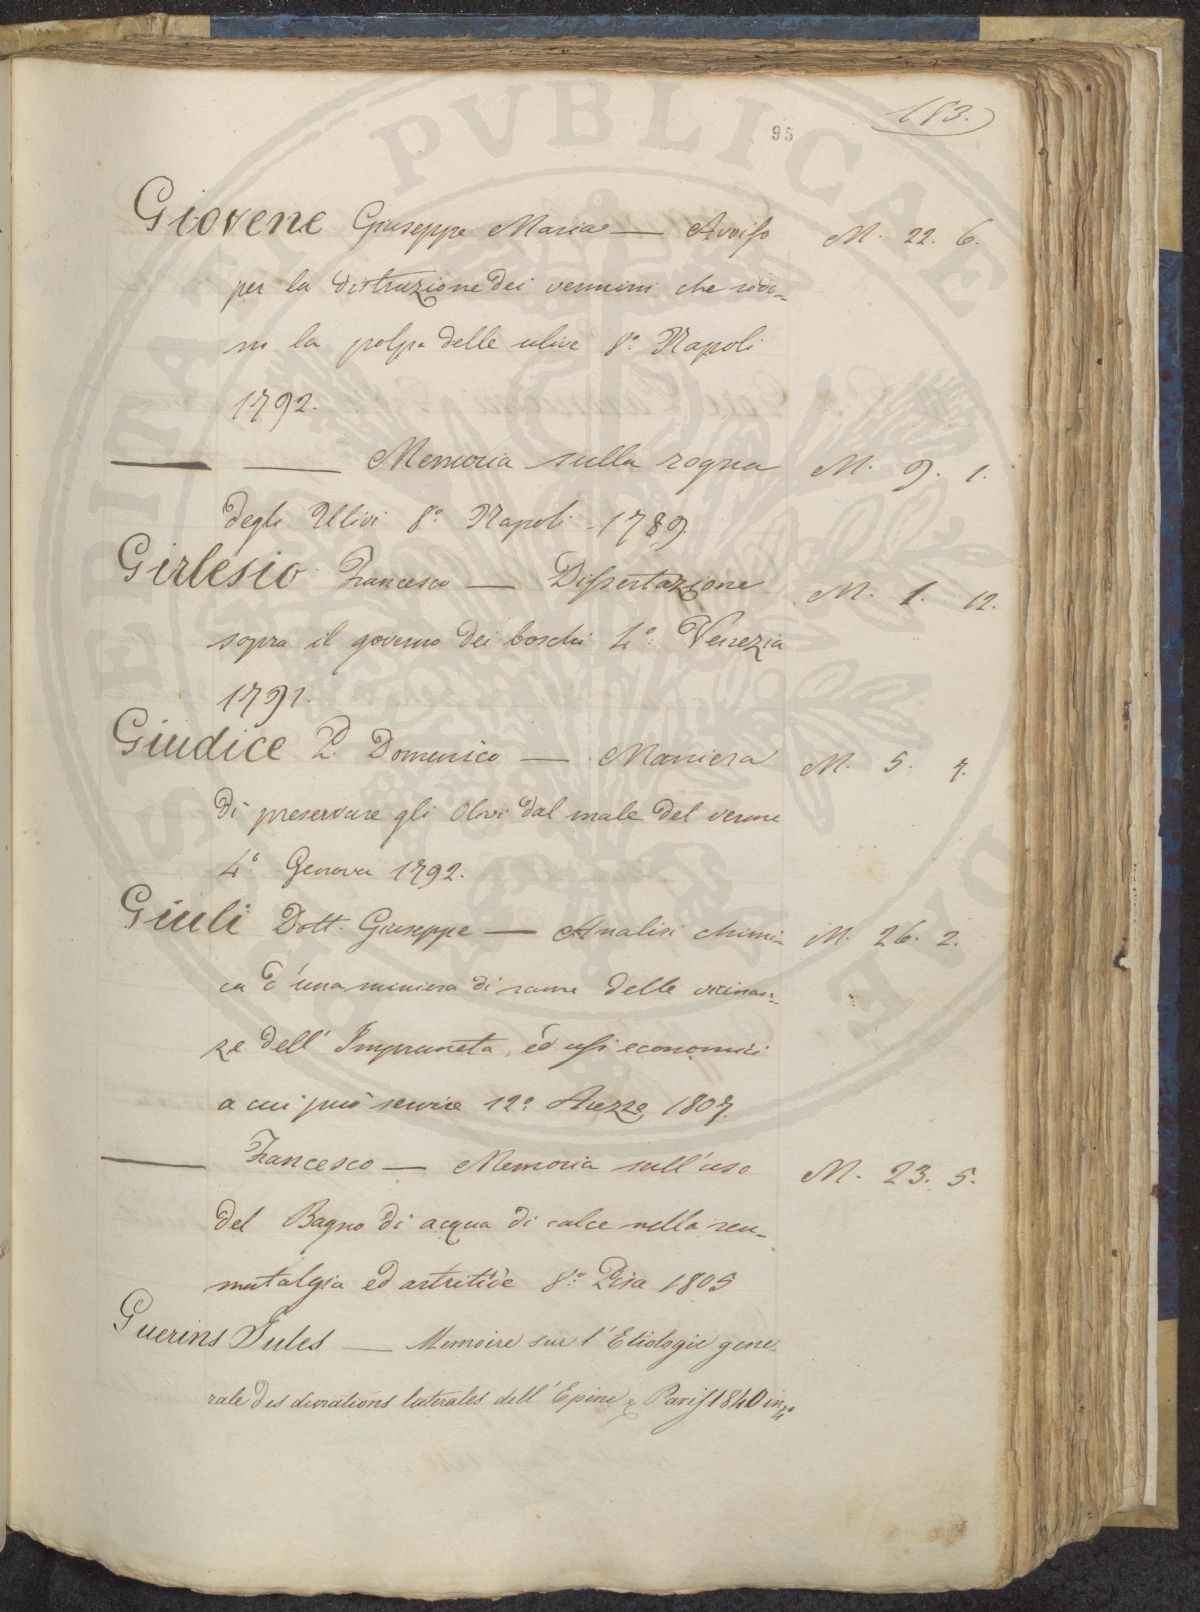 183.
95
Giovene Giuseppe Maria — Avviso M. 22. 6.
per la distruzione dei vermini che rodo-
no la polpa delle ulive 8.º Napoli
1792.
— — Memoria sulla rogna M. 9. 1.
degli Ulivi 8.º Napoli 1789.
Girlesio Francesco — Dissertazione M. 1. 12.
sopra il governo dei boschi 4.º Venezia
1791.
Giudice P. Domenico — Maniera M. 5. 7.
di preservare gli Olivi dal male del verme
4.º Genova 1792.
Giuli Dott. Giuseppe — Analisi chimi- M. 26. 2.
ca d'una miniera di rame delle vicinan-
ze dell'Impruneta, ed usi economici
a cui può servire 12.º Arezzo 1807.
— Francesco — Memoria sull'uso M. 23. 5.
del Bagno di acqua di calce nella reu-
matalgia ed artritide 8.º Pisa 1805
Guerins Jules — Memoire sur l'Etiologie gene
rale des deviations laterales dell'Epine Paris 1840 in 4º
PVBLICAE